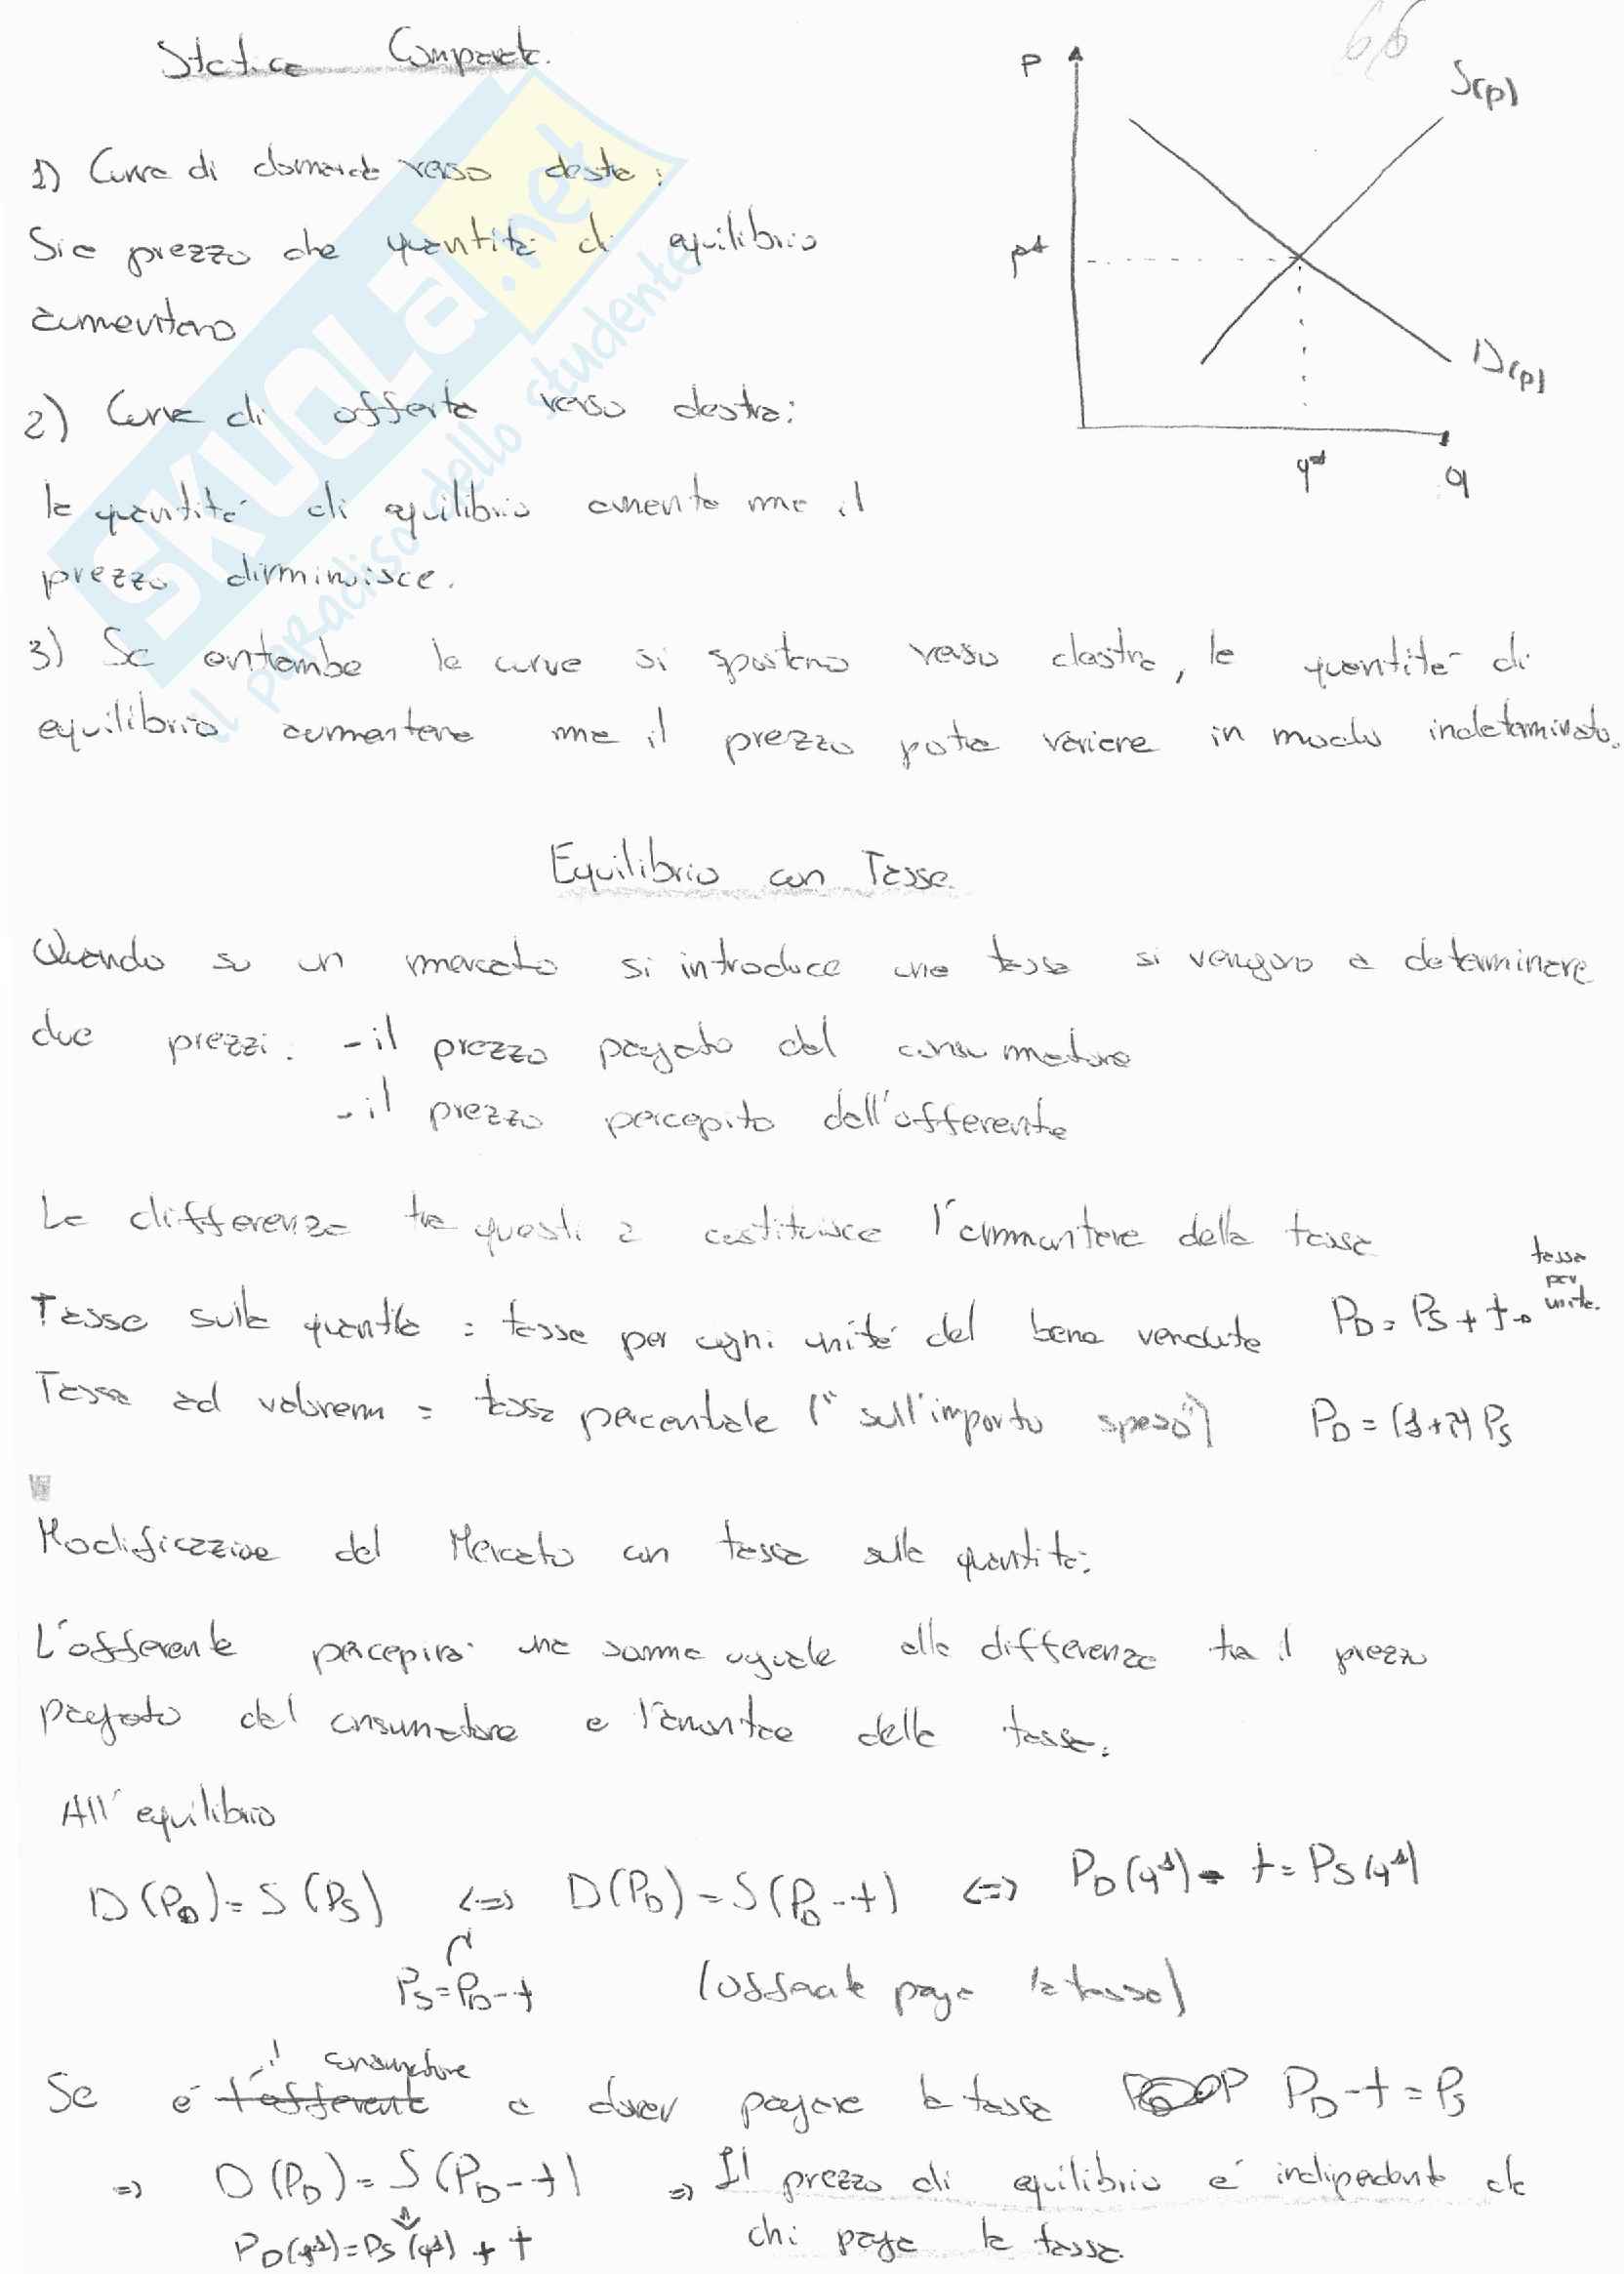 Statica Comparata.
66
P
S(p)
p*
D(p)
q*
q
1) Curva di domanda verso destra:
Sia prezzo che quantità di equilibrio
aumentano
2) Curva di offerta verso destra:
la quantità di equilibrio aumenta ma il
prezzo dirminuisce.
3) Se entrambe le curve si spostano verso destra, la quantità di
equilibrio aumentera ma il prezzo potra variare in modo indeterminato.
Equilibrio con Tasse.
Quando su un mercato si introduce una tassa si vengono a determinare
due prezzi: - il prezzo pagato dal consumatore
- il prezzo percepito dall'offerente
La differenza tra questi 2 costituisce l'ammontare della tassa
Tassa sulla quantità = tassa per ogni unità del bene venduta PD = PS + t → tassa per unità.
Tassa ad valorem = tassa percentuale ("sull'importo speso") PD = (1+τ) PS
Modificazione del Mercato con tassa sulla quantità:
L'offerente percepirà una somma uguale alla differenza tra il prezzo
pagato dal consumatore e l'amontare della tassa.
All'equilibrio
D(PD) = S(PS) <=> D(PD) = S(PD-t) <=> PD(q*) - t = PS(q*)
PS = PD-t (offerente paga la tassa)
Se è l'offerente il consumatore a dover pagare la tassa PD-t = PS
=> D(PD) = S(PD-t) => Il prezzo di equilibrio e' indipendente da
PD(q*) = PS(q*) + t chi paga la tassa.
SKUOLA.net
il paradiso dello studente